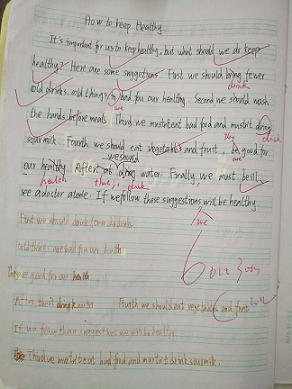 How to keep Healthy
It's important for us to keep healthy, but what should we do keep
healthy? Here are some suggestions. First we should bring fewer
drink
old drinks. old things is bad for our healthy. Second we should wash
are
the hands before meals. Third we mustn't eat bad food and mustn't dring
drink
sour milk. Fourth we should eat vegetables and fruit. be good for
they
are
our healthy. After at dring water. Finally we must be ill
we should
health
that, drink
see a doctor atone. If we follow these suggestions will be healthy.
we
First we should drink fewer old drinks
Cold things are bad for our health
They are good for our health
After that drink water Fourth we should eat vegetables and fruit
If we follow these suggestions we will be healthy
Third we mustn't eat bad food and mustn't drink sour milk.